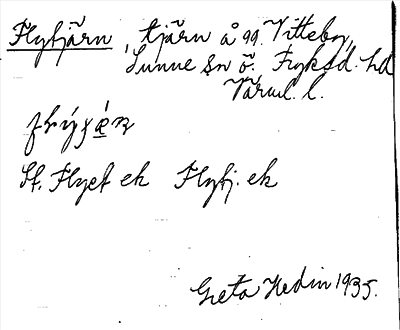 Flytjärn, tjärn å gg. Vitteby,
Sunne sn Ö. Fryksd. hd
Värml. l.
St. Flyet ek Flytj. ek
Greta Hedin 1935.